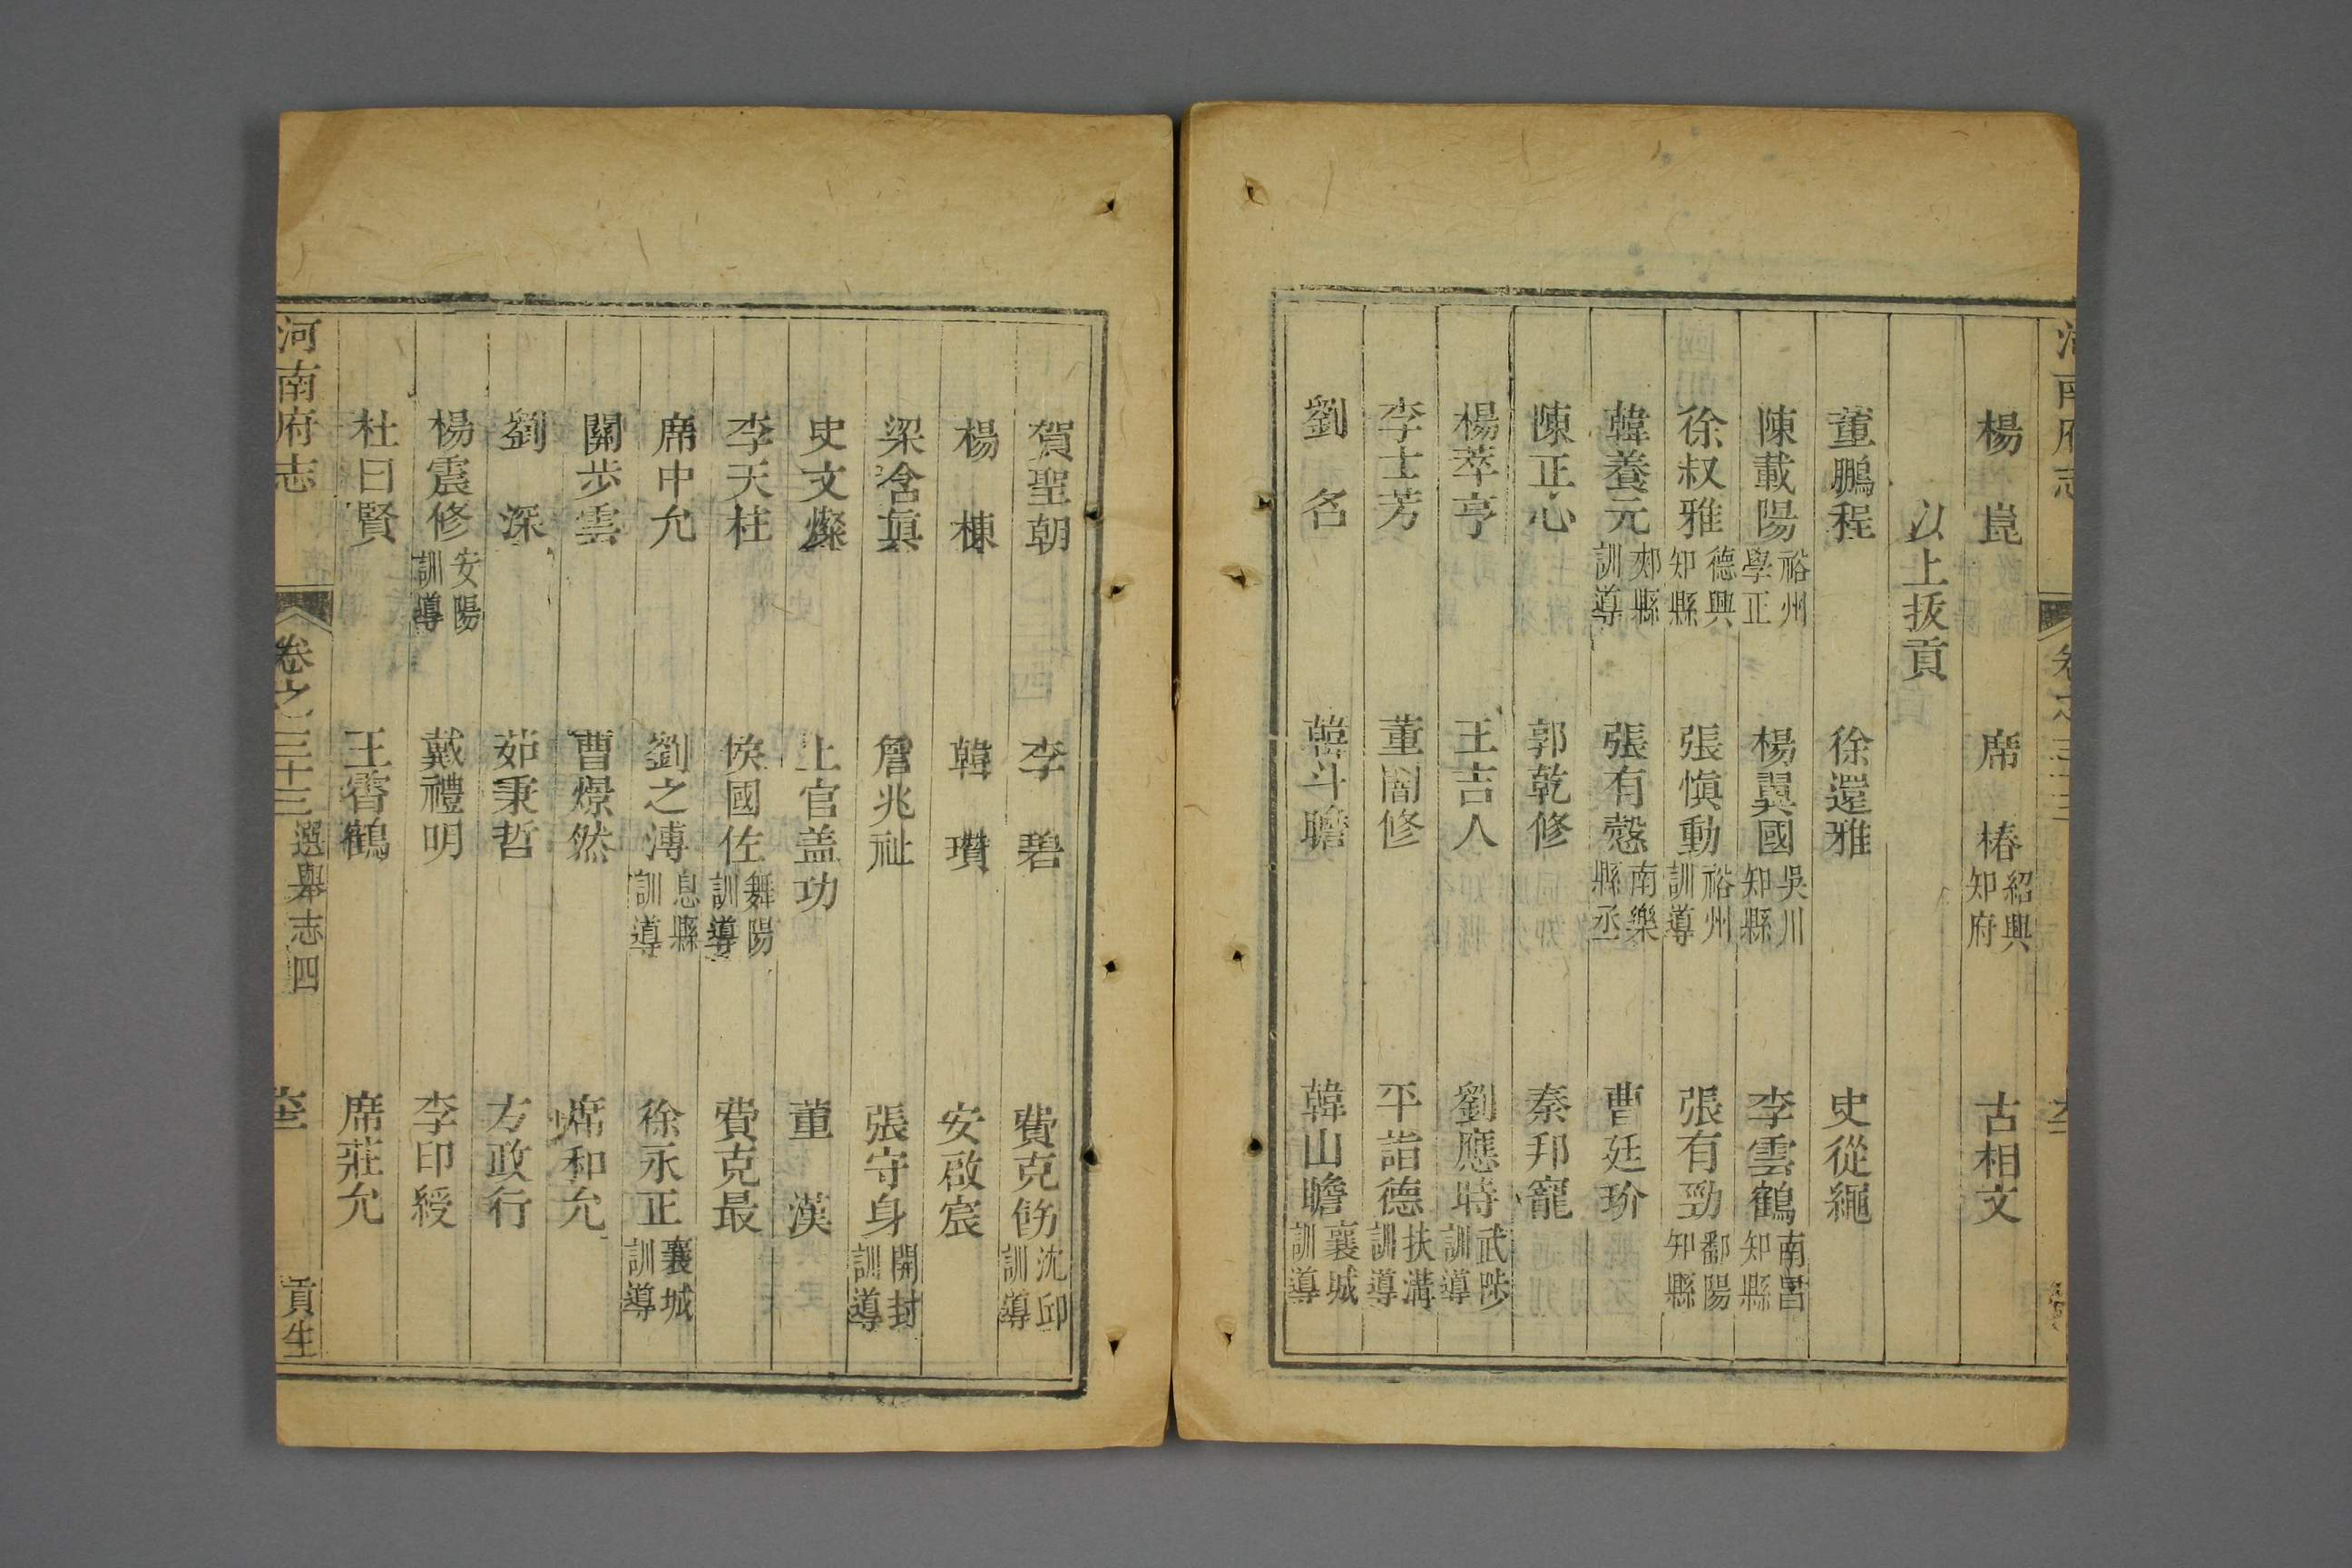 楊崑　席椿紹興知府　古相文
以上拔貢
董鵬程　徐還雅　史從繩
陳載陽裕州學正　楊翼國吳川知縣　李雲鶴南昌知縣
徐叔雅德興知縣　張慎動裕州訓導　張有勁鄱陽知縣
韓養元郟縣訓導　張有慤南樂縣丞　曹廷玠
陳正心　郭乾修　秦邦寵
楊萃亨　王吉人　劉應時武陟訓導
李士芳　董闇修　平詣德扶溝訓導
劉名　韓斗瞻　韓山瞻襄城訓導
賀聖朝　李碧　費克飭沈邱訓導
楊棟　韓瓚　安啟宸
梁含真　詹兆祉　張守身開封訓導
史文燦　上官盖功　董漢
李天柱　侯國佐舞陽訓導　費克最
席中允　劉之溥息縣訓導　徐永正襄城訓導
關步雲　曹燝然　席和允
劉深　茹秉哲　方政行
楊震修安陽訓導　戴禮明　李印綬
杜曰賢　王霄鶴　席莊允
河南府志　卷之三十三　選舉志四　貢生